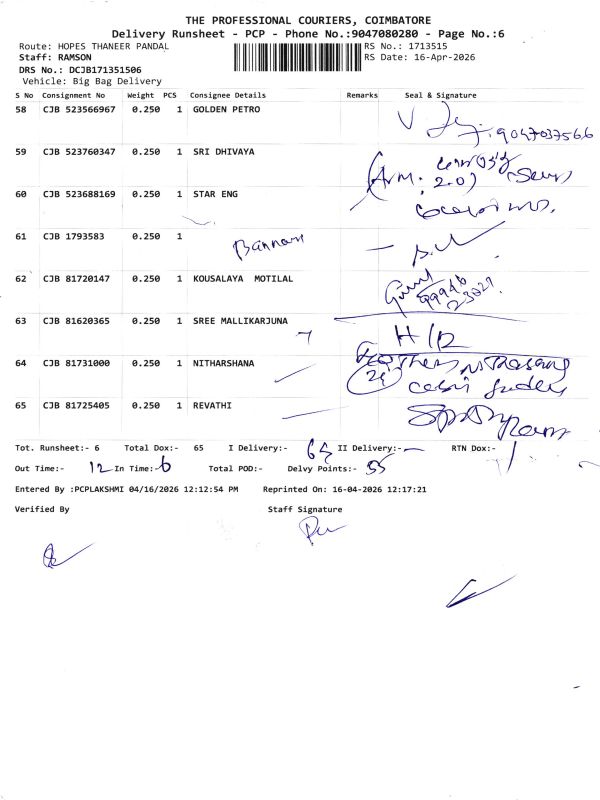 THE PROFESSIONAL COURIERS, COIMBATORE
Delivery Runsheet - PCP - Phone No.:9047080280 - Page No.:6
Route: HOPES THANEER PANDAL RS No.: 1713515
Staff: RAMSON RS Date: 16-Apr-2026
DRS No.: DCJB171351506
Vehicle: Big Bag Delivery
S No Consignment No Weight PCS Consignee Details Remarks Seal & Signature
58 CJB 523566967 0.250 1 GOLDEN PETRO
9047037566
59 CJB 523760347 0.250 1 SRI DHIVAYA
60 CJB 523688169 0.250 1 STAR ENG
61 CJB 1793583 0.250 1 Bannari
62 CJB 81720147 0.250 1 KOUSALAYA MOTILAL
99946
23029
63 CJB 81620365 0.250 1 SREE MALLIKARJUNA
H/D
64 CJB 81731000 0.250 1 NITHARSHANA
65 CJB 81725405 0.250 1 REVATHI
Tot. Runsheet:- 6 Total Dox:- 65 I Delivery:- 65 II Delivery:- RTN Dox:-
Out Time:- 12 In Time:- 6 Total POD:- Delvy Points:- 55
Entered By :PCPLAKSHMI 04/16/2026 12:12:54 PM Reprinted On: 16-04-2026 12:17:21
Verified By Staff Signature